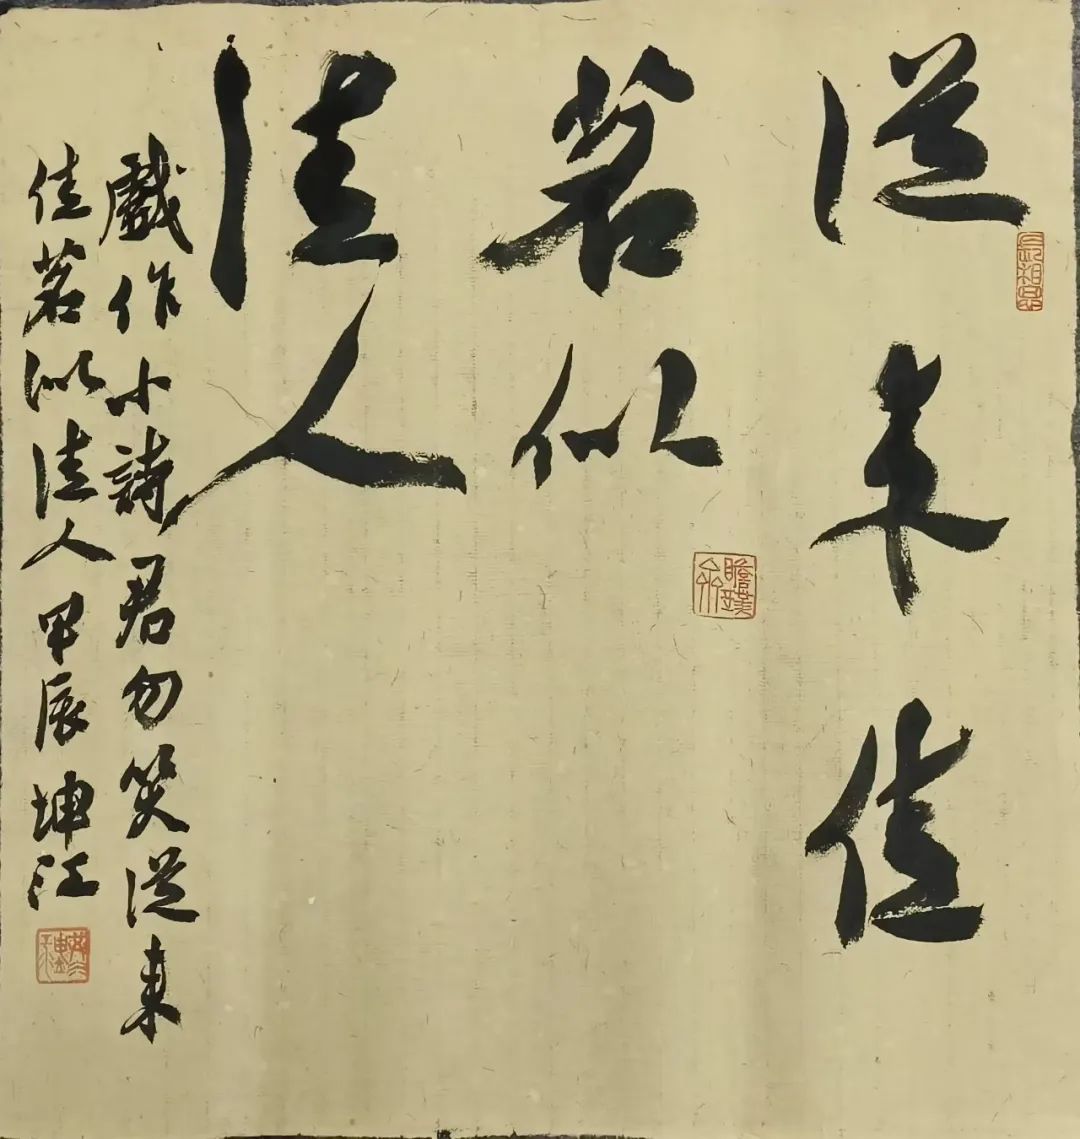 從来佳
茗似
佳人
戲作小詩君勿笑從来
佳茗似佳人甲辰坤江